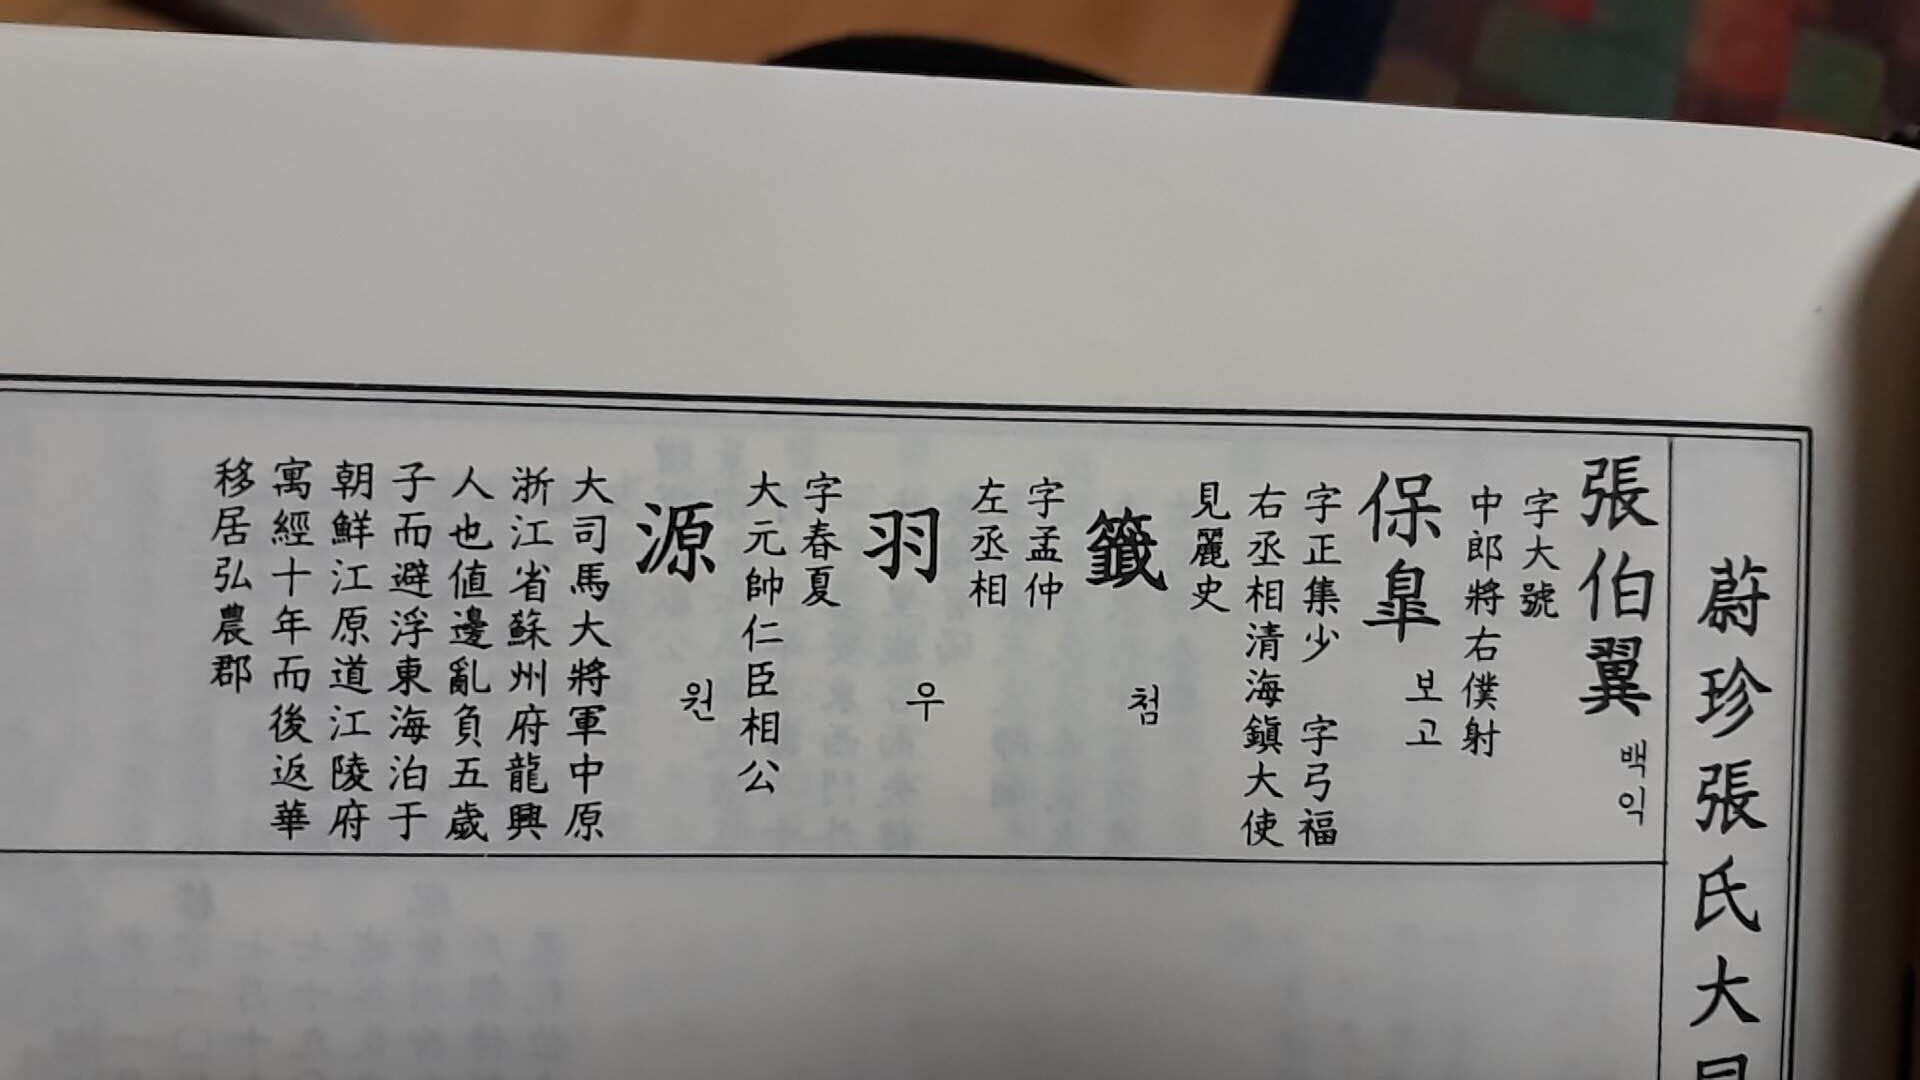 蔚珍張氏大同
張伯翼 백익
字大號
中郎將右僕射
保皐 보고
字正集少 字弓福
右丞相清海鎭大使
見麗史
籤 첨
字孟仲
左丞相
羽 우
字春夏
大元帥仁臣相公
源 원
大司馬大將軍中原
浙江省蘇州府龍興
人也値邊亂負五歲
子而避浮東海泊于
朝鮮江原道江陵府
寓經十年而後返華
移居弘農郡